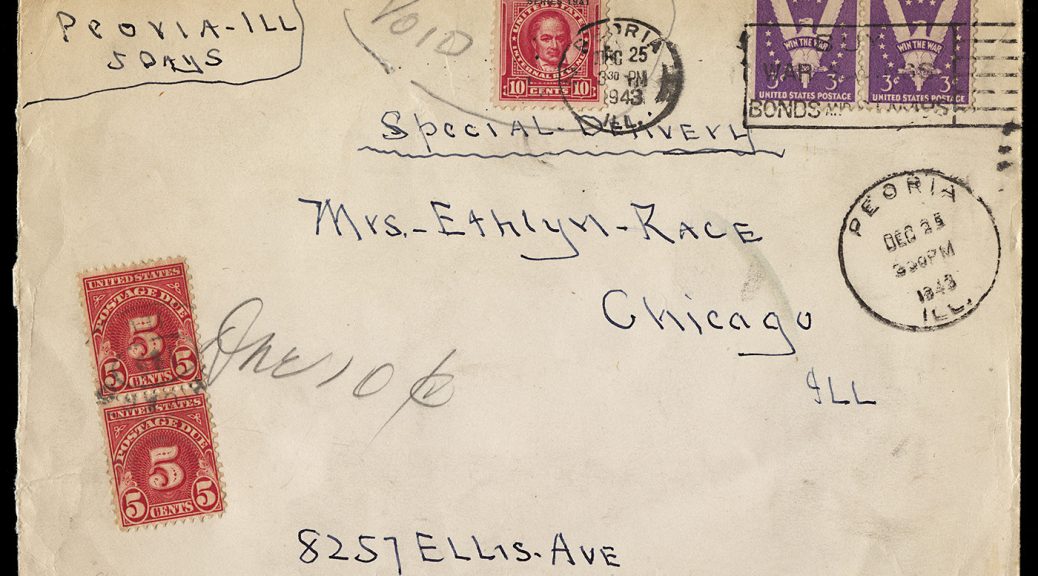 PEORIA-ILL
5 DAYS
VOID
UNITED STATES
INTERNAL REVENUE
10 CENTS 10
PEORIA
DEC 25
3 30 PM
1943
ILL.
WIN THE WAR
WIN THE WAR
3¢ 3¢
UNITED STATES POSTAGE
UNITED STATES POSTAGE
WAR
BONDS
SPECIAL-DELIVERY
MRS.-Ethlyn-RACE
Chicago
ILL
PEORIA
DEC 25
330PM
1943
ILL.
UNITED STATES
POSTAGE DUE
5
5 CENTS 5
UNITED STATES
POSTAGE DUE
5
5 CENTS 5
Due 10¢
8257 ELLIS-AVE